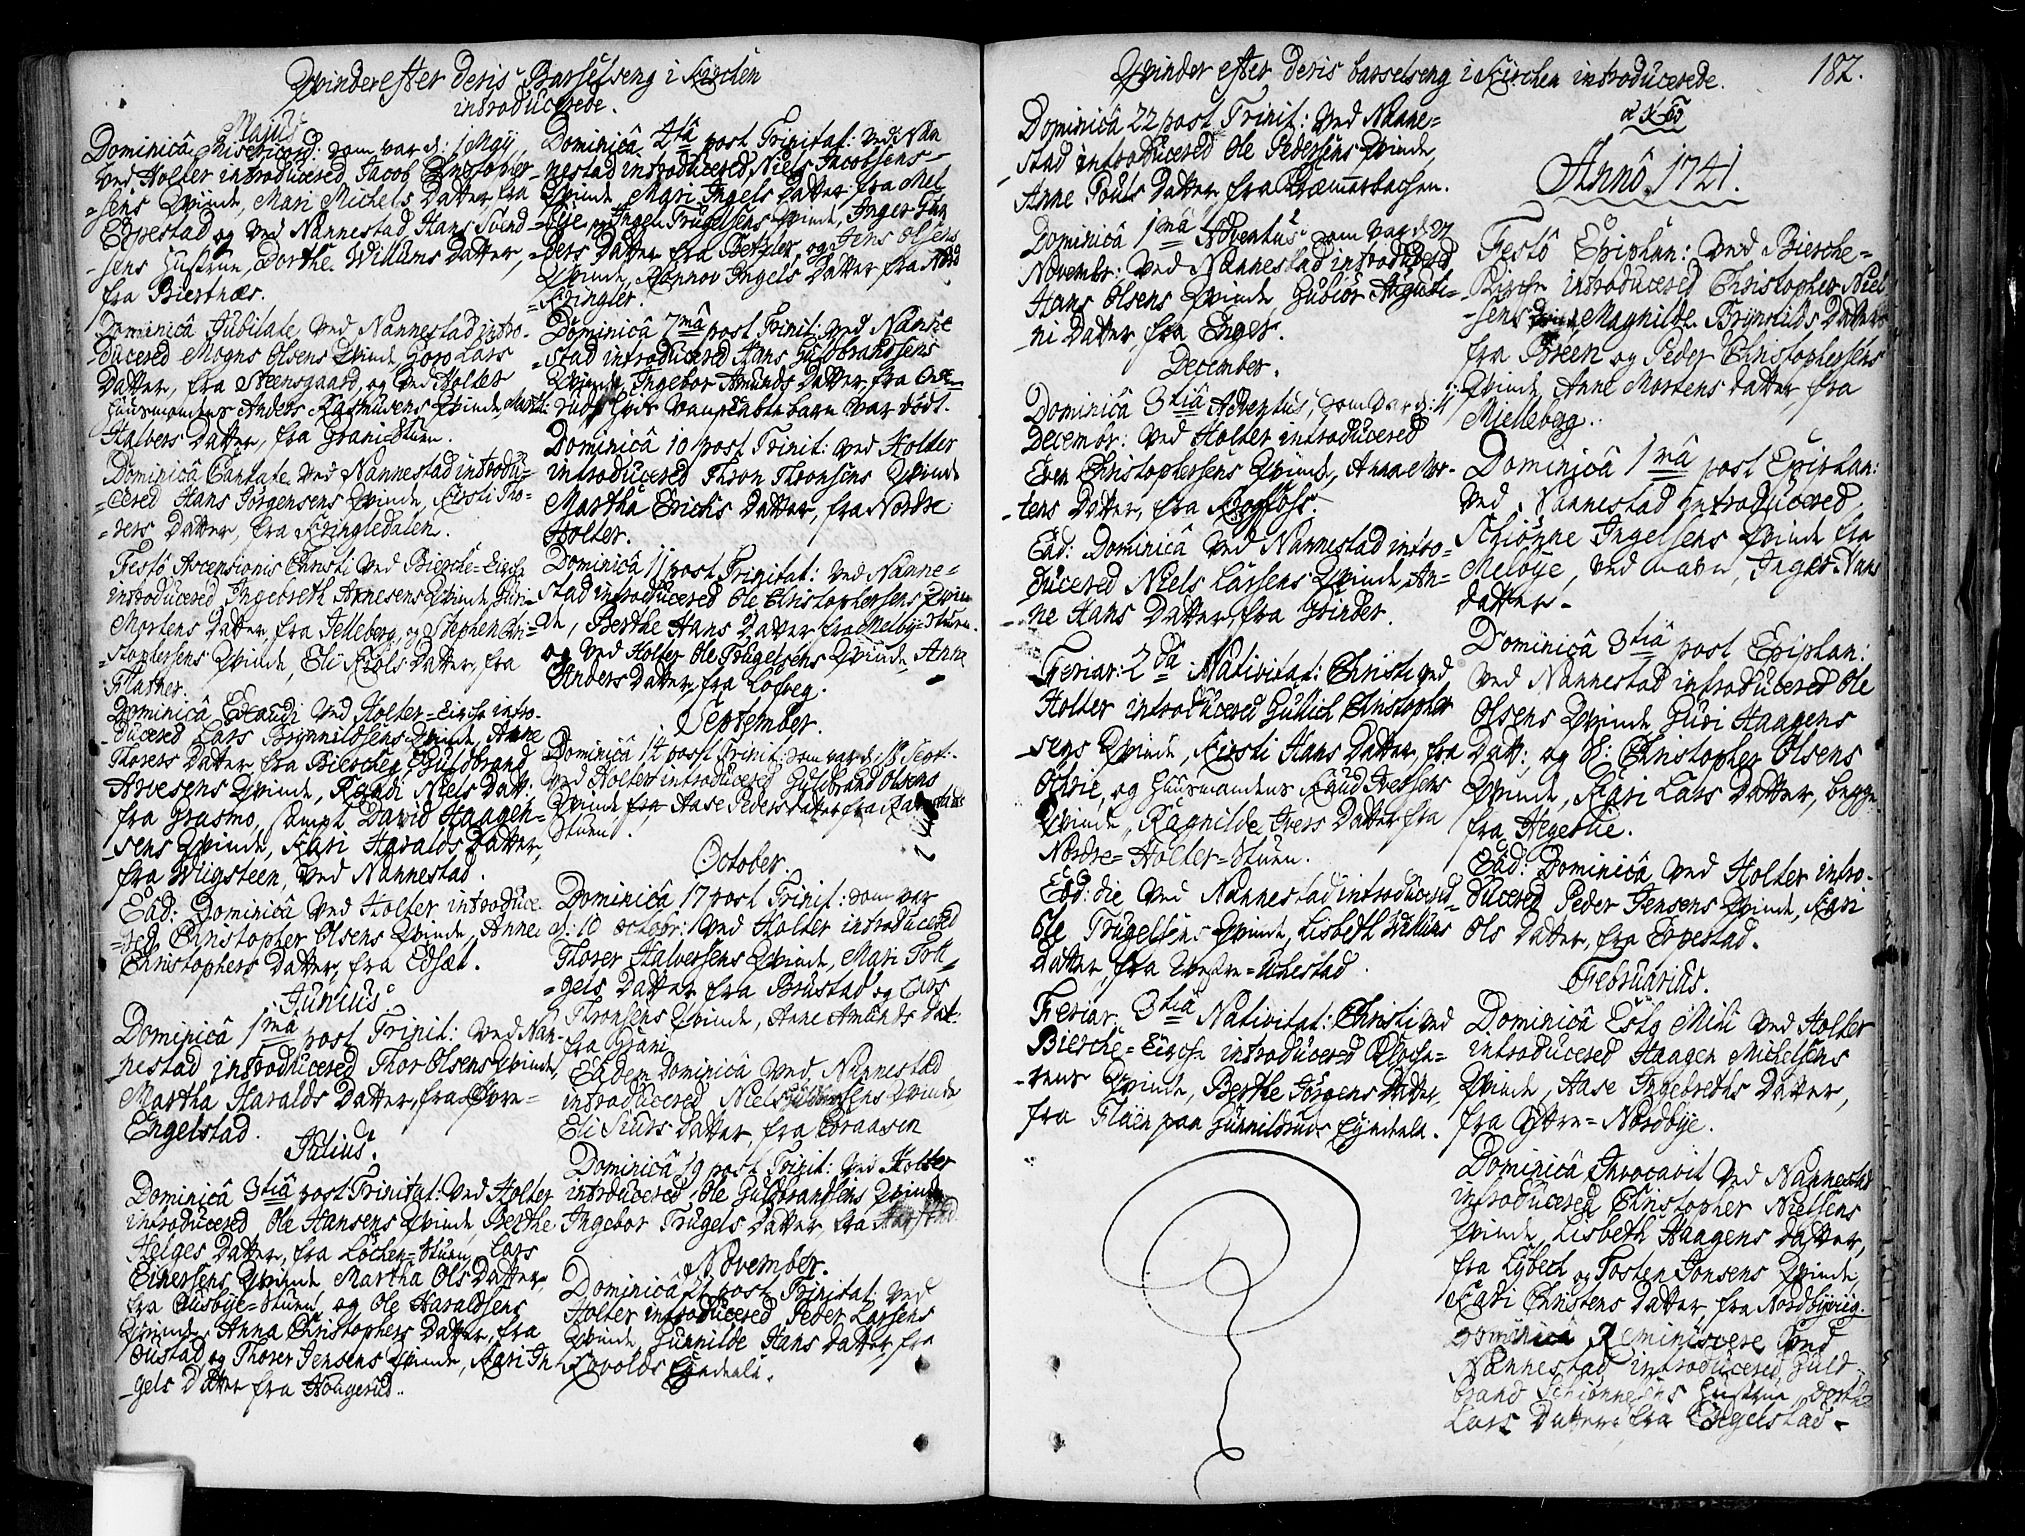 Qvinder efter deris Barselseng i Kirchen
introducerede.
Majus
Dominicâ Misericord: som var d: 1 Maij,
ved Holter introducered Jacob Christopher-
-sens Qvinde, Mari Michels Datter, fra
Eppestad og ved Nannestad Hans Svend-
-sens Hustrue, Dorthe Willums Datter,
fra Biertnæs.
Dominicâ Jubilate ved Nannestad intro-
-ducered Mogns Olsens Qvinde, Goro Lars
Datter, fra Steensgaard, og ved Holter
Huusmandens Anders Rasmusens Qvinde,
Halvors Datter, fra Grani-Stuen.
Dominicâ Cantate ved Nannestad introdu-
-cered Hans Jörgensens Qvinde, Kirsti Tho-
-ders Datter, fra Kringledalen.
Festô Ascensionis Christi ved Bierche-Kirche
introducered Ingebreth Arnesens Qvinde, Guri
Mortens Datter, fra Jelleberg, og Stephen Chri-
-stophersens Qvinde, Eli Niels Datter, fra
Flather.
Dominicâ Exaudi ved Holter-Kirche intro-
-ducered Lars Brynnildsens Qvinde, Anne
Thorers Datter fra Bierche, Guldbrand
Arvesens Qvinde, Randi Niels Datt:
fra Grasmo, sampt David Haagen-
-sens Qvinde, Kari Haralds Datter,
fra Wiigsteen, ved Nannestad.
Eâd: Dominicâ ved Holter introduce-
-red Christopher Olsens Qvinde, Anne
Christophers Datter, fra Edsæt.
Junius
Dominicâ 1mâ post Trinit: ved Nan-
nestad introducered Thor Olsens Qvinde,
Martha Haralds Datter, fra Øvre-
Engelstad.
Julius.
Dominicâ 3tiâ post Trinitat: ved Holter
introducered Ole Hansens Qvinde, Berthe
Helges Datter, fra Löchen-Stuen, Lars
Einersens Qvinde Martha Ols Datter,
fra Huusbye-Stuen, og Ole Haraldsens
Qvinde, Anna Christophers Datter, fra
Oustad, og Thorer Jensens Qvinde, Kari In-
-gels Datter fra Hougerud.
Dominicâ 4tâ post Trinitat: ved Nan-
-nestad introducered Niels Jacobsens
Qvinde, Mari Ingels Datter fra Mel-
-löye, Ingel Trugelsens Qvinde, Inger Gun-
-ders Datter fra Betzler, og Jens Olsens
Qvinde, Rannov Ingels Datter fra Nord-
-Kringler.
Dominicâ 7mâ post Trinit: ved Nanne-
-stad introducered Hans Guldbrandsens
Qvinde, Ingebor Amunds Datter, fra
-rud, hvis vanskabte barn var dödt.
Dominicâ 10 post Trinit: ved Holter
introducered Thron Thronsens Qvinde
Martha Erichs Datter, fra Nordre
Holter.
Dominicâ 11 post Trinitat: ved Nanne-
stad introducered Ole Christophersens Qvin-
de, Berthe Hans Datter fra Melby-Stuen.
og ved Holter Ole Trugelsens Qvinde Anna
Anders Datter, fra Lofveg.
September.
Dominicâ 14 post Trinit: som var d: 18 Sept:
ved Holter introducered Guldbrand Olsens
Qvinde fra Aase Peders Datter fra
Stuen.
October.
Dominicâ 17 post Trinit: som var
d: 10 octobr: ved Holter introducered
Thorer Halversens Qvinde, Mari Trü-
-gels Datter fra Brustad og Lars
Thronsens Qvinde, Anne Amunds Dat:
fra Grani
Eâdem Dominicâ ved Nannestad
introducered Niels Qvinde
Eli Siurs Datter fra Aaraasen
Dominicâ 19 post Trinit: ved Holter
introducered Ole Guldbrandsens Qvinde
Ingebor Trugels Datter, fra Harstad.
November.
Dominicâ 21 post Trinitat: ved
Holter introducered Peder Larsens
Qvinde, Gunnilde Hans Datter, fra
Rovolds Eyendeele.
Qvinder efter deris barselseng i Kirchen introducerede.
182.
Dominicâ 22 post Trinit: ved Nanne-
-stad introducered Ole Pedersens Qvinde,
Anne Pouls Datter, fra Kræmmerbachen.
Dominicâ 1mâ Adventus som var d 27
Novembr: ved Nannestad introducered
Hans Olsens Qvinde Gubiör Augusti-
-ni Datter, fra Enger.
December.
Dominicâ 3tiâ Adventus, som var d: 11
Decembr: ved Holter introducered
Even Christophersens Qvinde, Anna Mor-
-tens Datter, fra Rogfoss.
Eâd: Dominicâ ved Nannestad intro-
ducered Niels Larsens Qvinde, An-
-ne Hans Datter, fra Grinder.
Feriar: 2dâ Nativitat: Christi ved
Holter introducered Gulich Christopher-
-sens Qvinde, Kirsti Hans Datter, fra
Olstie, og Huusmandens Knud Iversens
Qvinde, Ragnilde Ivers Datter fra
Nordre-Holter-Stuen.
Eod: die ved Nannestad introducered
Ole Trugelsens Qvinde, Lisbeth Willums
Datter, fra Vestre-Uhlestad.
Feriar: 3tiâ Nativitat: Christi ved
Bierche-Kirche introducered Klocke-
-rens Qvinde, Berthe Jörgens Datter,
fra Flaen paa Gunnildruds Eyendeele.
Annô 1741.
Festô Epiphan: ved Bierche-
-Kirche introducered Christopher Niel-
-sens Magnilde Brynnilds Datter
fra Breen og Peder Christophersens
Qvinde, Anne Mortens Datter, fra
Mielleberg.
Dominicâ 1mâ post Epiphan:
ved Nannestad introducered
Schiönne Ingelsens Qvinde fra
Melöye, ved navn, Inger Nans
datter.
Dominicâ 3tiâ post Epiphan:
ved Nannestad introducered Ole
Olsens Qvinde Guri Haagens
Datt: og S: Christopher Olsens
Qvinde, Kari Lars Datter, begge
fra Hegerlie.
Eâd: Dominicâ ved Holter intro-
ducered Peder Jensens Qvinde, Kari
Ols Datter, fra Eppestad.
Februarius.
Dominicâ Esto Mihi ved Holter
introducered Haagen Michelsens
Qvinde, Aase Ingebreths Datter,
fra Østre-Nordbye.
Dominicâ Invocavit ved Nannestad
introducered Christopher Nielsens
Qvinde, Lisbeth Haagens Datter,
fra Lybech og Tosten Jonsens Qvinde,
Kari Christens Datter fra Nordbyviig.
Dominicâ Reminiscere ved
Nannestad introducered Guld-
brand Schionnesens Hustrue, Dorthe
Lars Datter fra Engelstad.